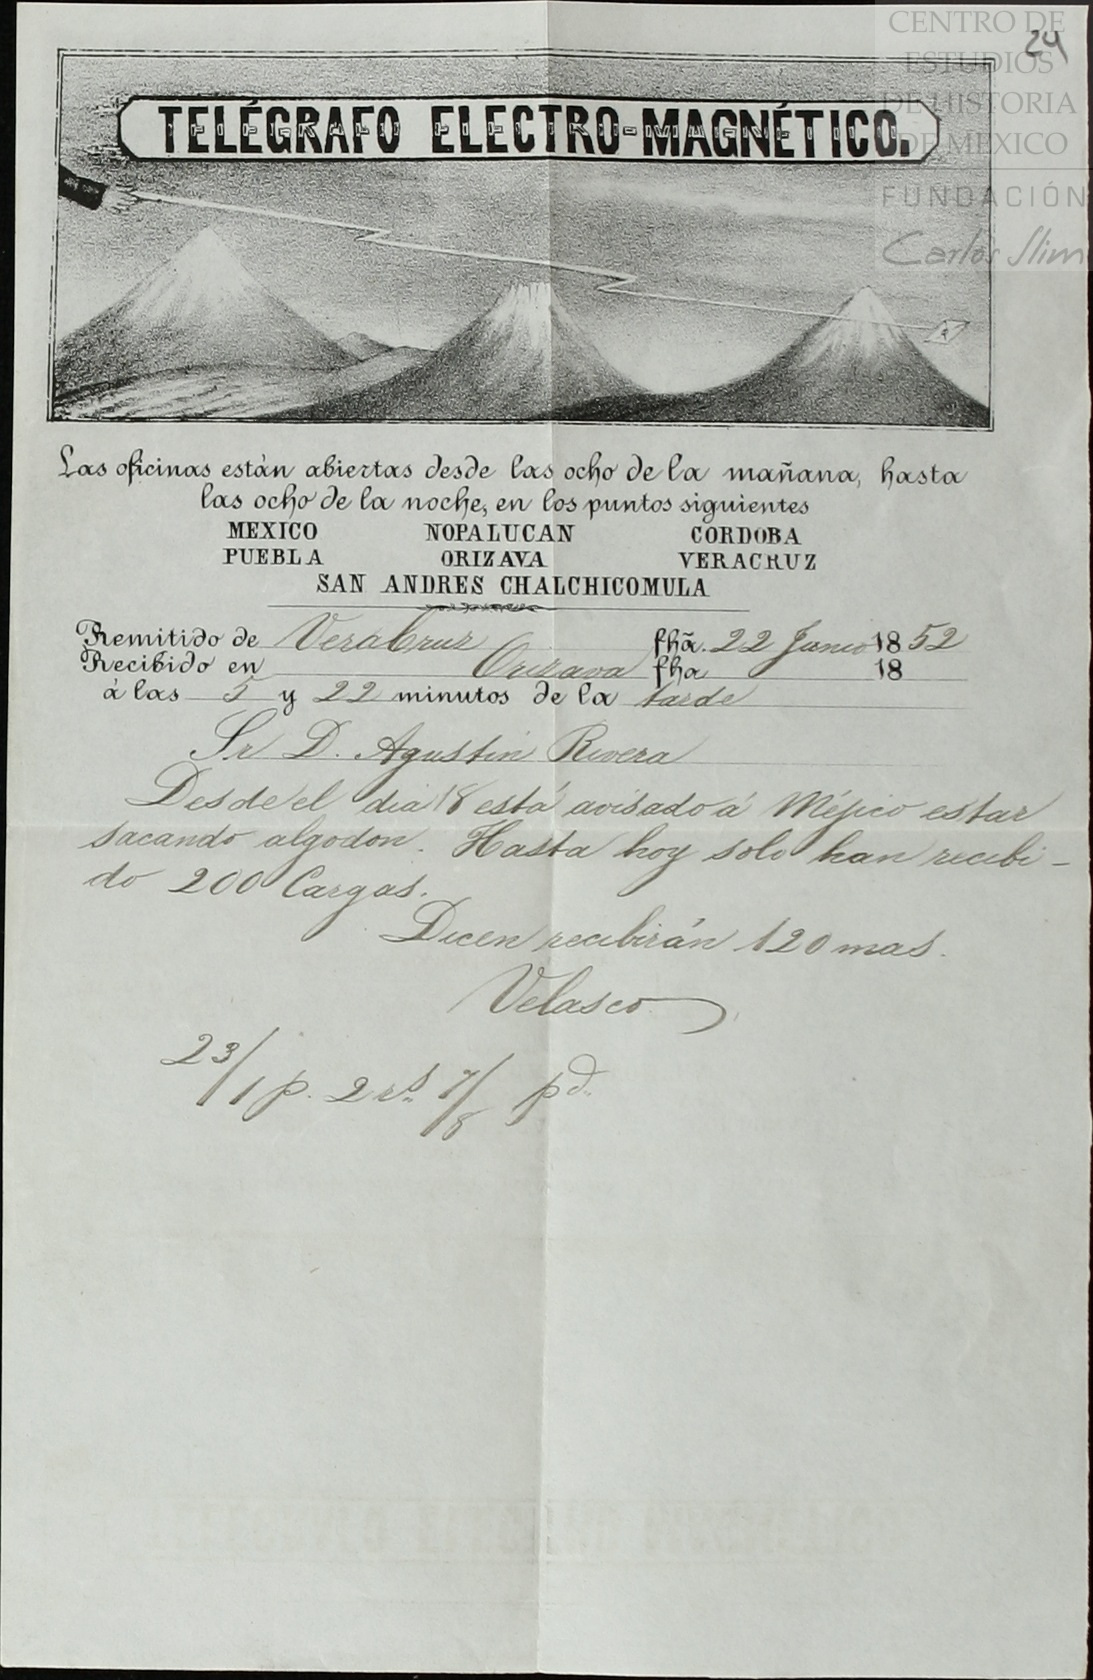 24
CENTRO DE
ESTUDIOS
DE HISTORIA
DE MEXICO
FUNDACIÓN
Carlos Slim
TELÉGRAFO ELECTRO-MAGNÉTICO.
Las oficinas están abiertas desde las ocho de la mañana, hasta
las ocho de la noche, en los puntos siguientes
MEXICO NOPALUCAN CORDOBA
PUEBLA ORIZAVA VERACRUZ
SAN ANDRES CHALCHICOMULA
Remitido de VeraCruz fhã. 22 Junio 1852
Recibido en Orizava fha 18
á las 5 y 22 minutos de la tarde
Sr D. Agustin Rivera
Desde el dia 18 está avisado á Méjico estar
sacando algodon. Hasta hoy solo han recibi-
do 200 Cargas.
Dicen recibirán 120 mas.
Velasco
23/1 p. 2 rs. 7/8 pd.